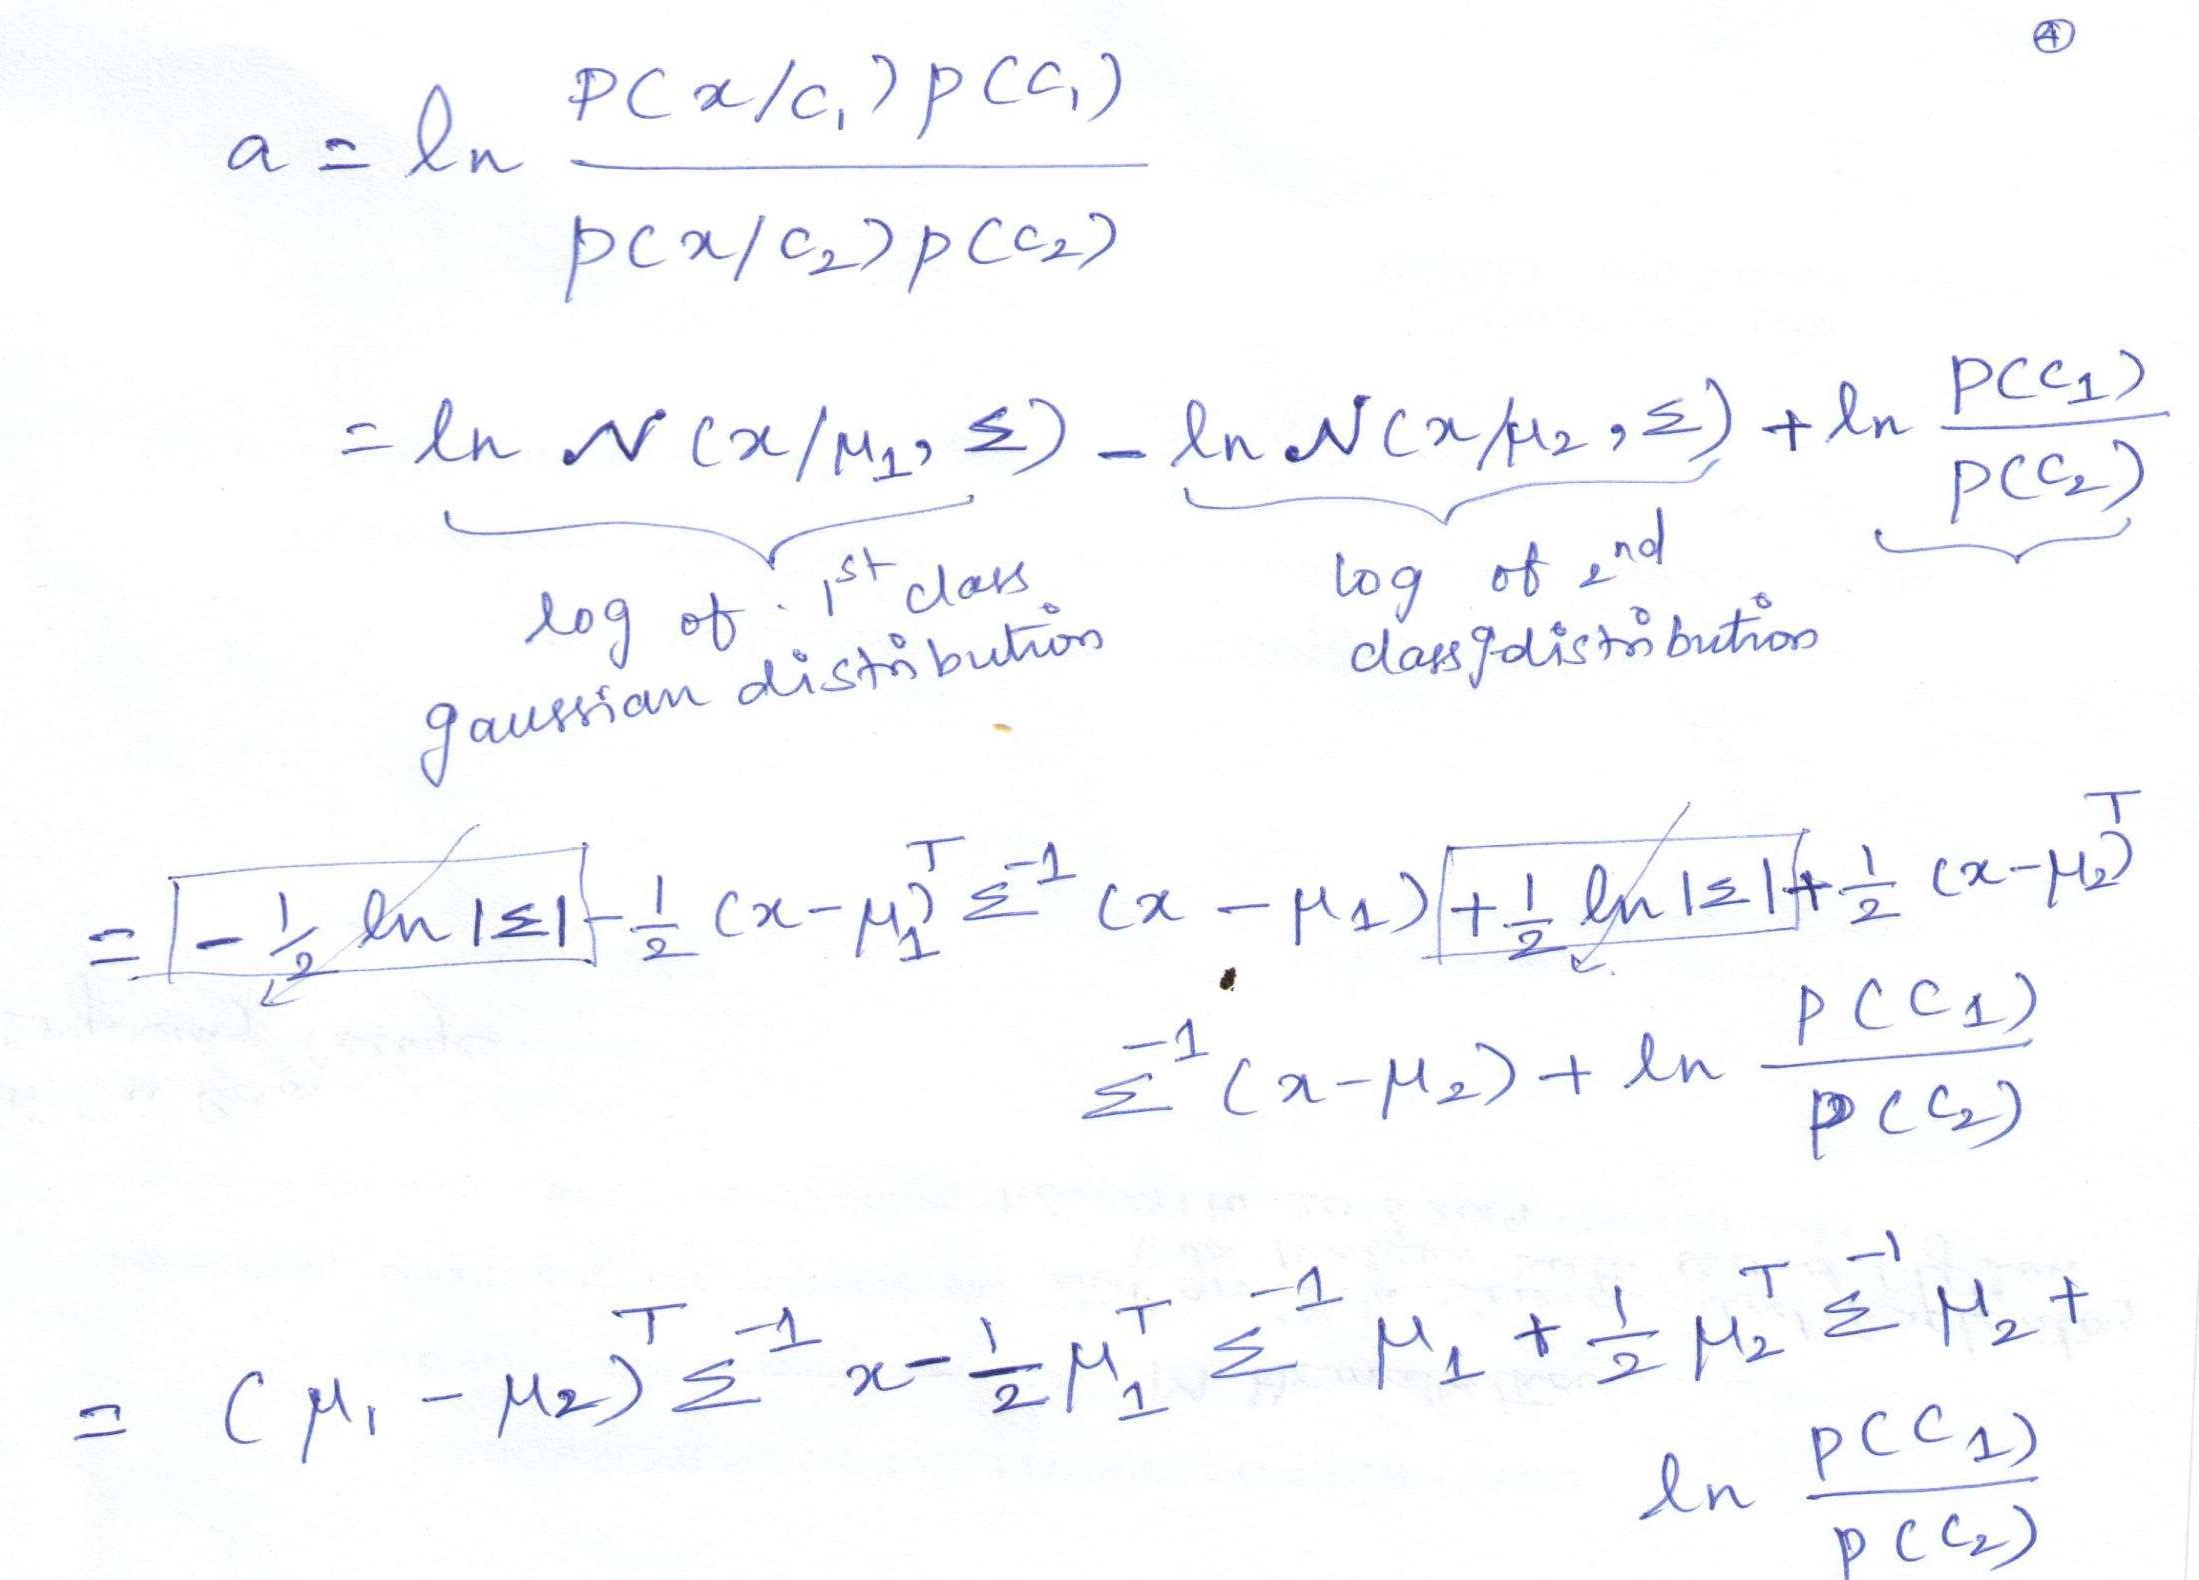 ④
a = ln P(x/C₁) p(C₁) / p(x/C₂) p(C₂)
= ln N(x/μ₁, Σ) - ln N(x/μ₂, Σ) + ln P(C₁) / P(C₂)
log of 1st class gaussian distribution
log of 2nd class g distribution
= - 1/2 ln |Σ| - 1/2 (x-μ₁)ᵀ Σ⁻¹ (x - μ₁) + 1/2 ln |Σ| + 1/2 (x-μ₂)ᵀ
Σ⁻¹ (x-μ₂) + ln P(C₁) / P(C₂)
= (μ₁ - μ₂)ᵀ Σ⁻¹ x - 1/2 μ₁ᵀ Σ⁻¹ μ₁ + 1/2 μ₂ᵀ Σ⁻¹ μ₂ +
ln P(C₁) / P(C₂)